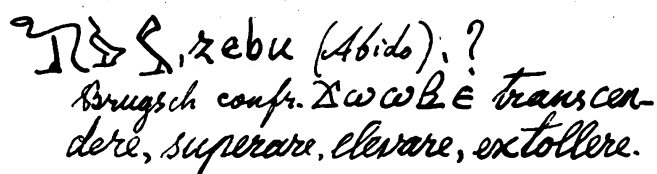 , zebu (Abido). ?
Brugsch confr. ϫⲱⲱⲃⲉ transcen-
dere, superare, elevare, extollere.